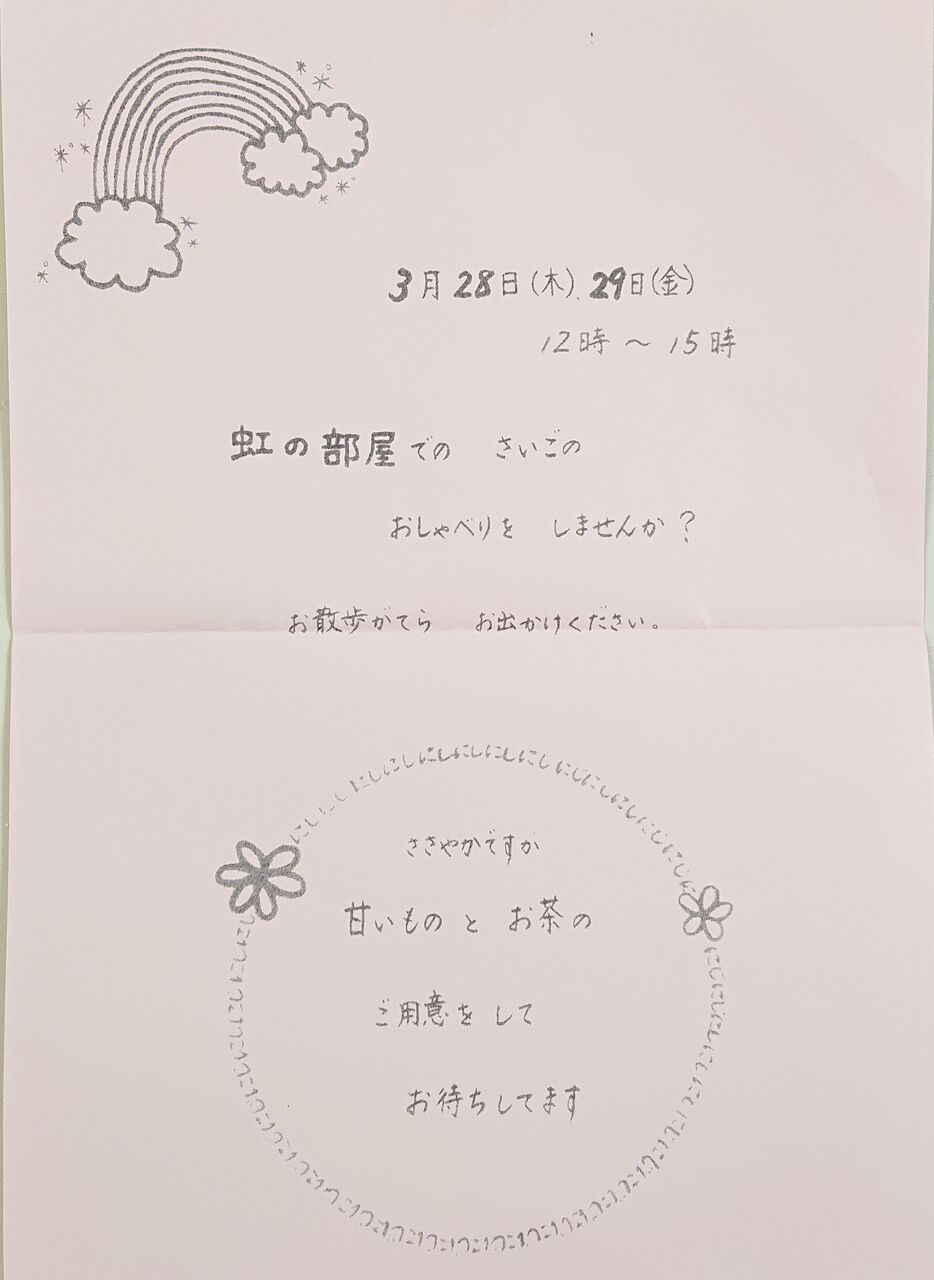 3月28日(木)、29日(金)
12時～15時
虹の部屋での さいごの
おしゃべりを しませんか?
お散歩がてら お出かけください。
ささやかですが
甘いものと お茶の
ご用意を して
お待ちしてます